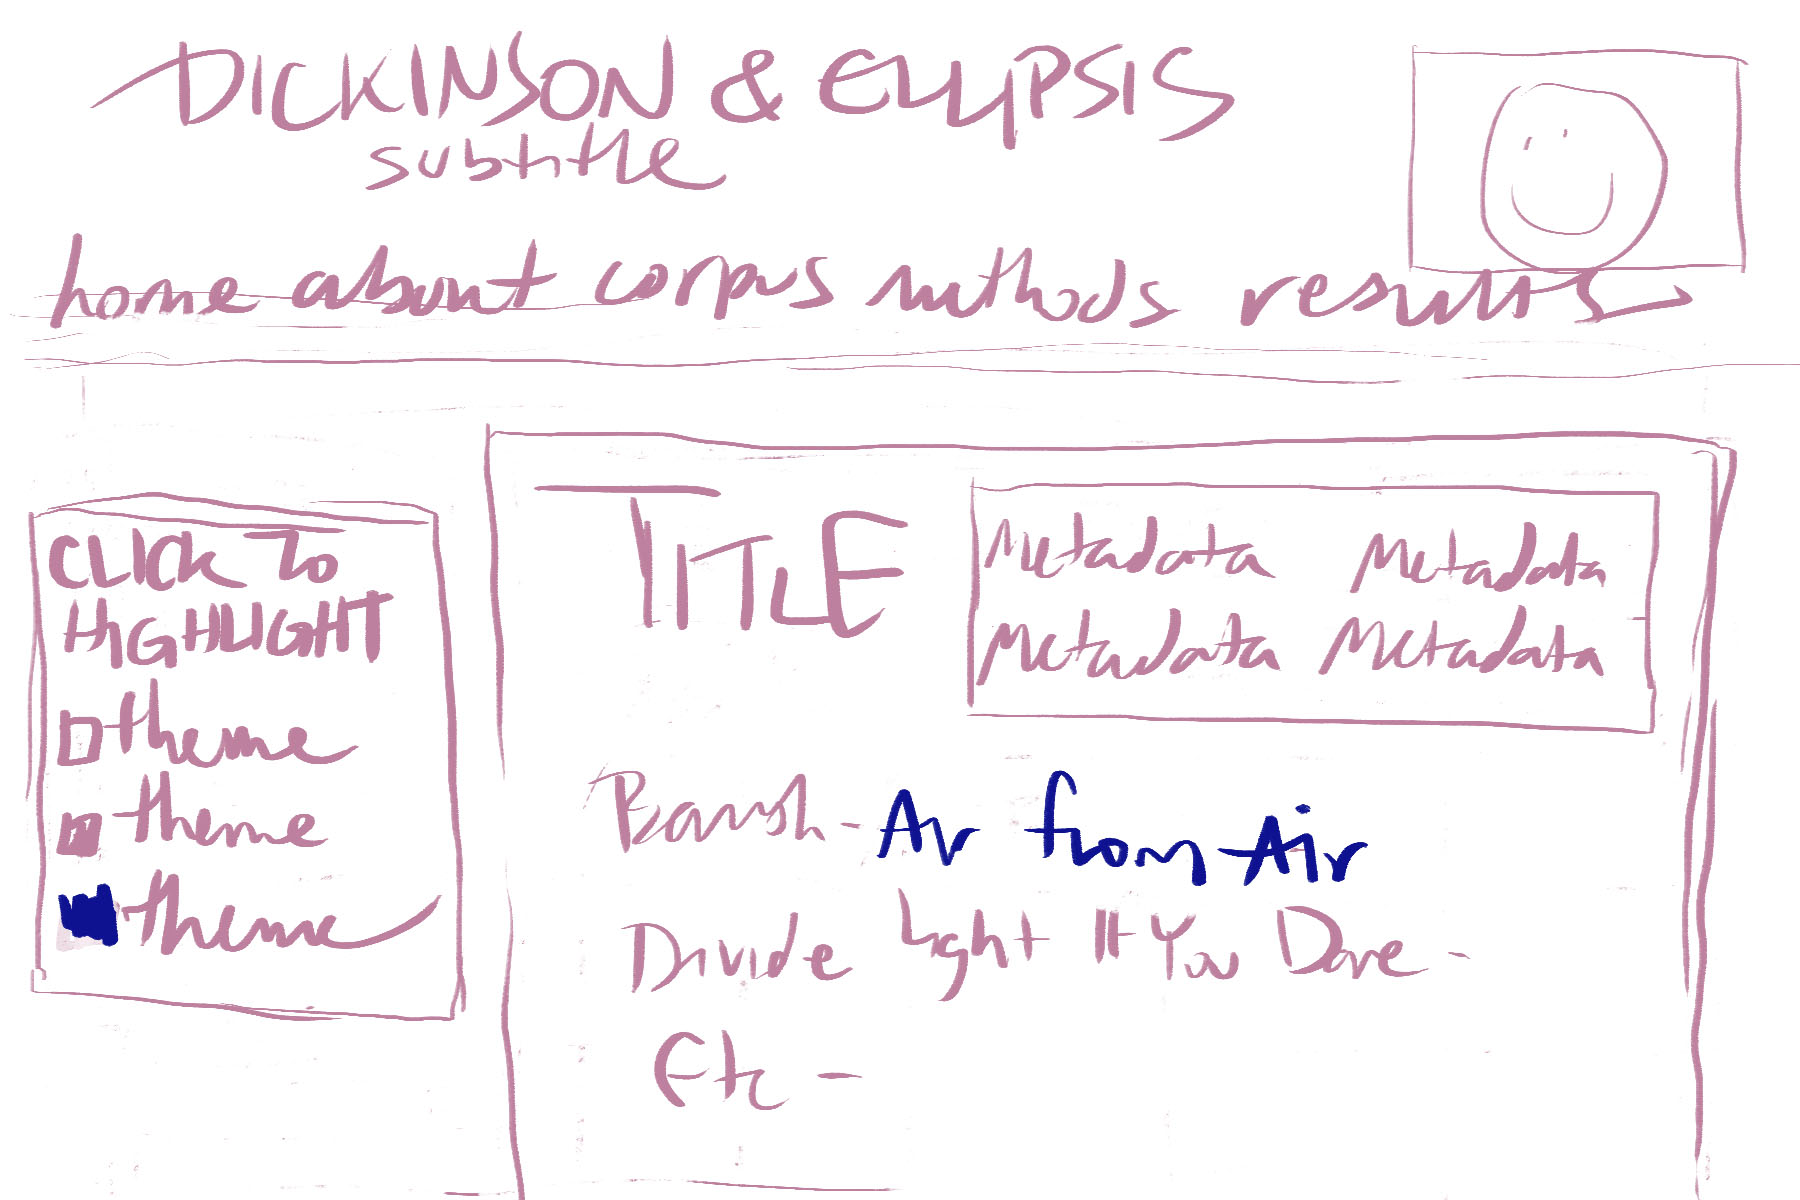 DICKINSON & ELLIPSIS
subtitle
home about corpus methods results
CLICK TO
HIGHLIGHT
theme
theme
theme
TITLE
Metadata Metadata
Metadata Metadata
Banish - Air from Air
Divide Light If You Dare -
Etc -